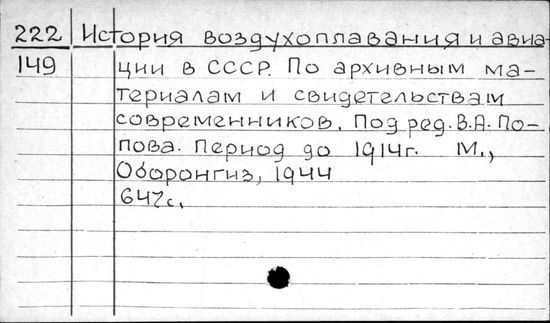 222 История воздухоплавания и авиа-
149 ции в СССР. По архивным ма-
териалам и свидетельствам
современников. Под ред. В.А. По-
пова. Период до 1914г. М.,
Оборонгиз, 1944
647с.